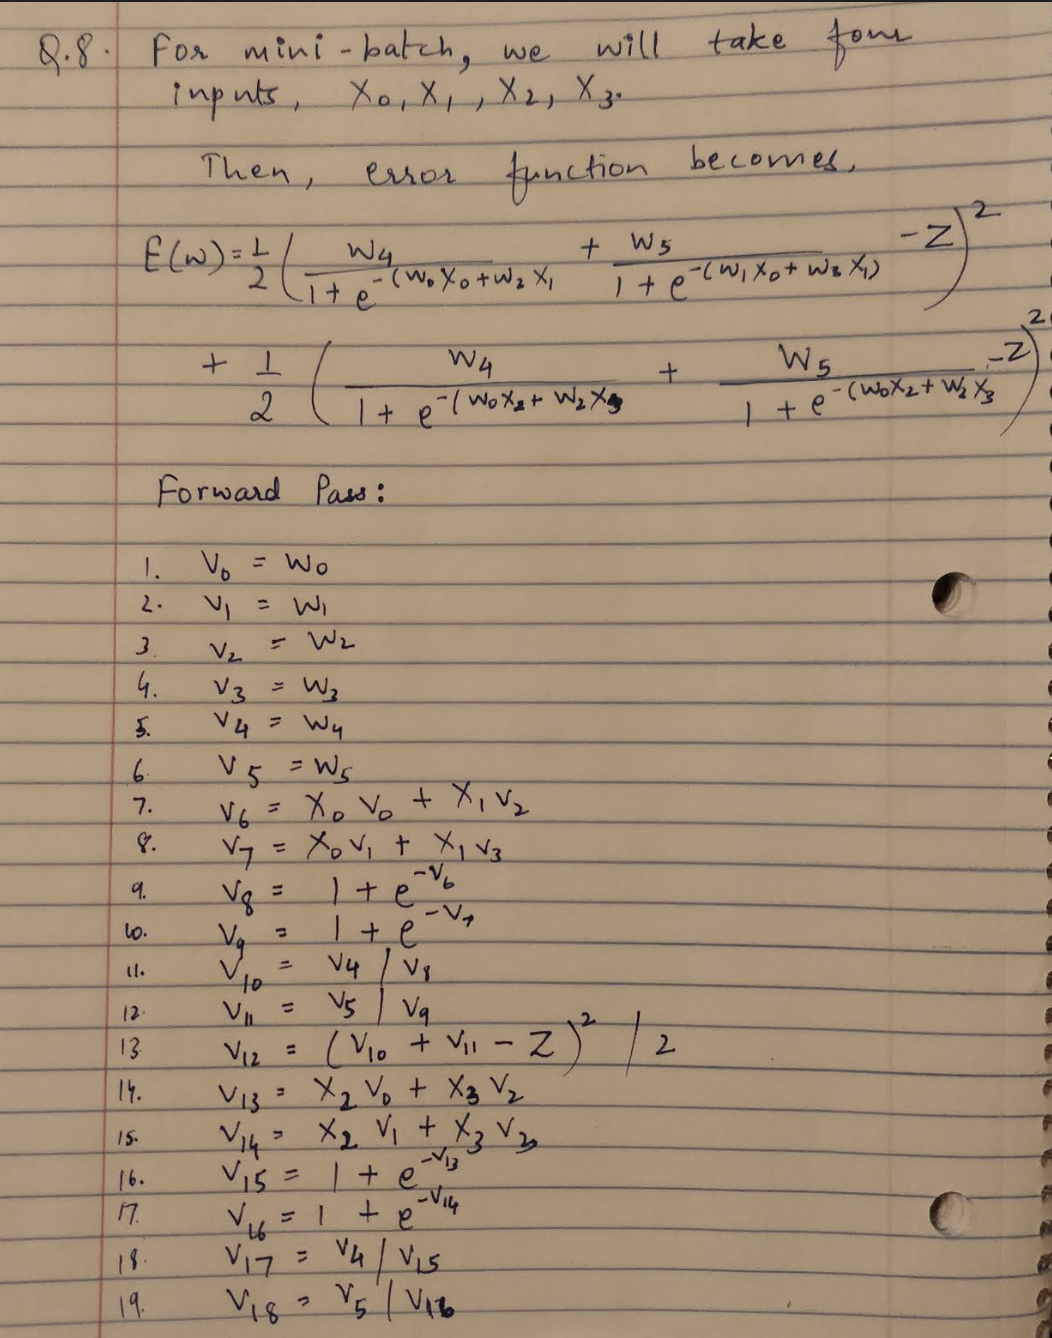 Q.8. For mini-batch, we will take four
inputs, X₀, X₁, X₂, X₃.
Then, error function becomes,
E(w) = 1/2 ( W₄ / 1 + e^-(W₀X₀+W₂X₁ + W₅ / 1 + e^-(W₁X₀+W₃X₁) - Z )²
+ 1/2 ( W₄ / 1 + e^-(W₀X₂+W₂X₃ + W₅ / 1 + e^-(W₀X₂+W₂X₃ - Z )²
Forward Pass:
1. V₀ = W₀
2. V₁ = W₁
3. V₂ = W₂
4. V₃ = W₃
5. V₄ = W₄
6. V₅ = W₅
7. V₆ = X₀ V₀ + X₁ V₂
8. V₇ = X₀ V₁ + X₁ V₃
9. V₈ = 1 + e^-V₆
10. V₉ = 1 + e^-V₇
11. V₁₀ = V₄ / V₈
12. V₁₁ = V₅ / V₉
13 V₁₂ = (V₁₀ + V₁₁ - Z)² / 2
14. V₁₃ = X₂ V₀ + X₃ V₂
15. V₁₄ = X₂ V₁ + X₃ V₃
16. V₁₅ = 1 + e^-V₁₃
17. V₁₆ = 1 + e^-V₁₄
18. V₁₇ = V₄ / V₁₅
19. V₁₈ = V₅ / V₁₆